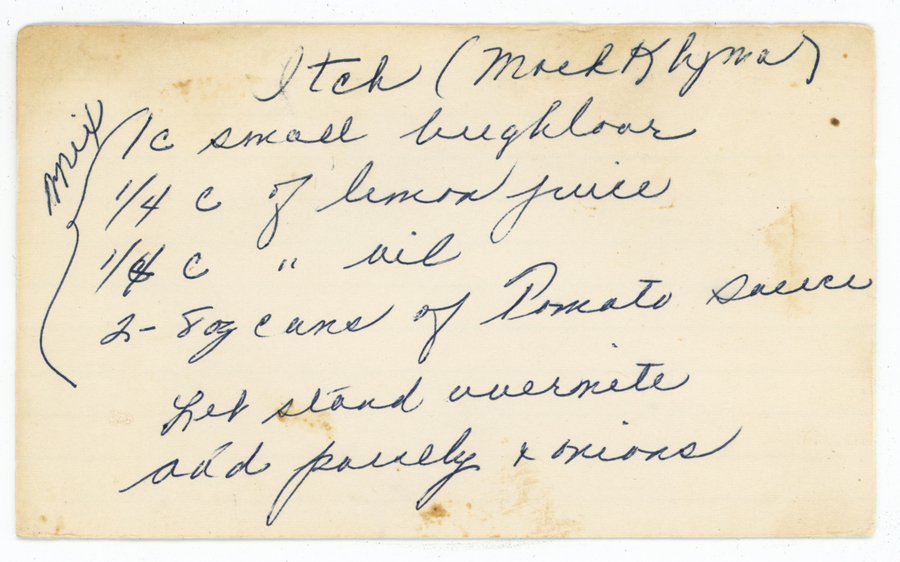 Itch (Mock Khyma)
mix
1c small bughloar
1/4 c of lemon juice
1/4 c " oil
2- 8oz cans of Tomato sauce
Let stand overnite
add parsely & onions